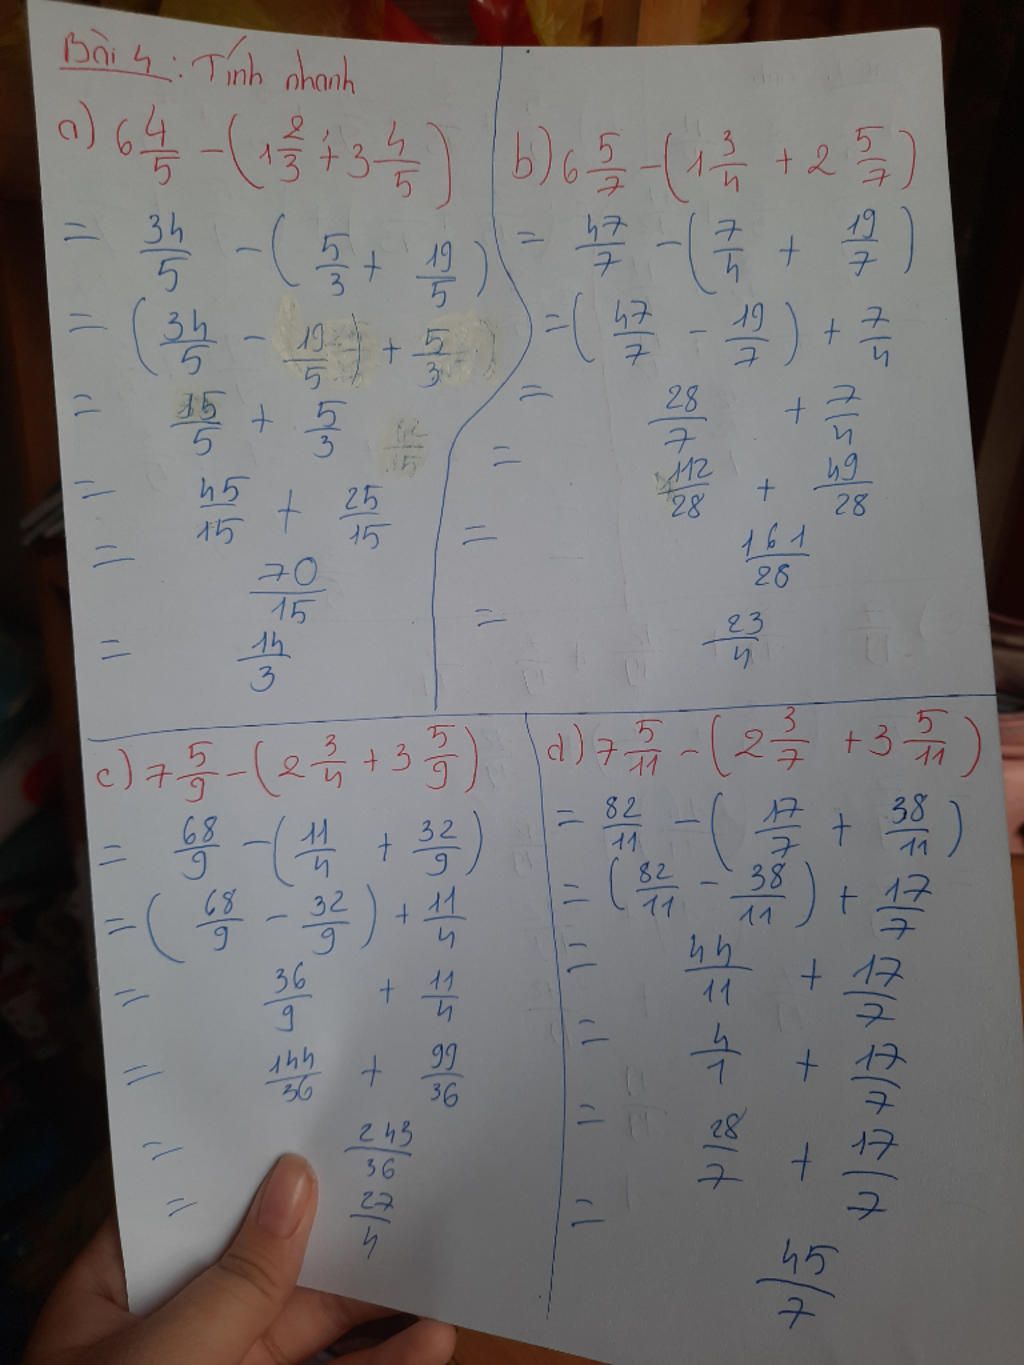 Bài 4: Tính nhanh
a) 6 4/5 - (1 2/3 + 3 4/5)
= 34/5 - (5/3 + 19/5)
= (34/5 - 19/5) + 5/3
= 15/5 + 5/3
= 45/15 + 25/15
= 70/15
= 14/3
b) 6 5/7 - (1 3/4 + 2 5/7)
= 47/7 - (7/4 + 19/7)
= (47/7 - 19/7) + 7/4
= 28/7 + 7/4
= 112/28 + 49/28
= 161/28
= 23/4
c) 7 5/9 - (2 3/4 + 3 5/9)
= 68/9 - (11/4 + 32/9)
= (68/9 - 32/9) + 11/4
= 36/9 + 11/4
= 144/36 + 99/36
= 243/36
= 27/4
d) 7 5/11 - (2 3/7 + 3 5/11)
= 82/11 - (17/7 + 38/11)
= (82/11 - 38/11) + 17/7
= 44/11 + 17/7
= 4/1 + 17/7
= 28/7 + 17/7
= 45/7